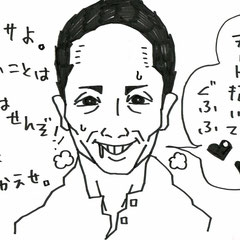 サよ。
いことは
はせんぞ!
と
かえせ。
ート描いて
ぐふふ